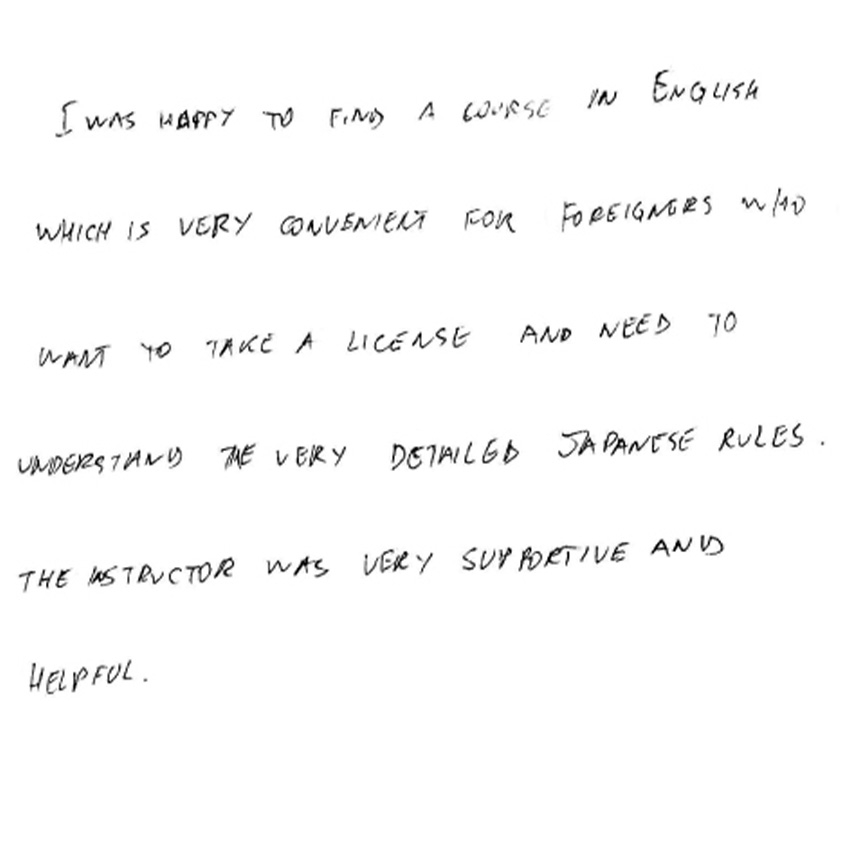 I WAS HAPPY TO FIND A COURSE IN ENGLISH
WHICH IS VERY CONVENIENT FOR FOREIGNERS WHO
WANT TO TAKE A LICENSE AND NEED TO
UNDERSTAND THE VERY DETAILED JAPANESE RULES.
THE INSTRUCTOR WAS VERY SUPPORTIVE AND
HELPFUL.